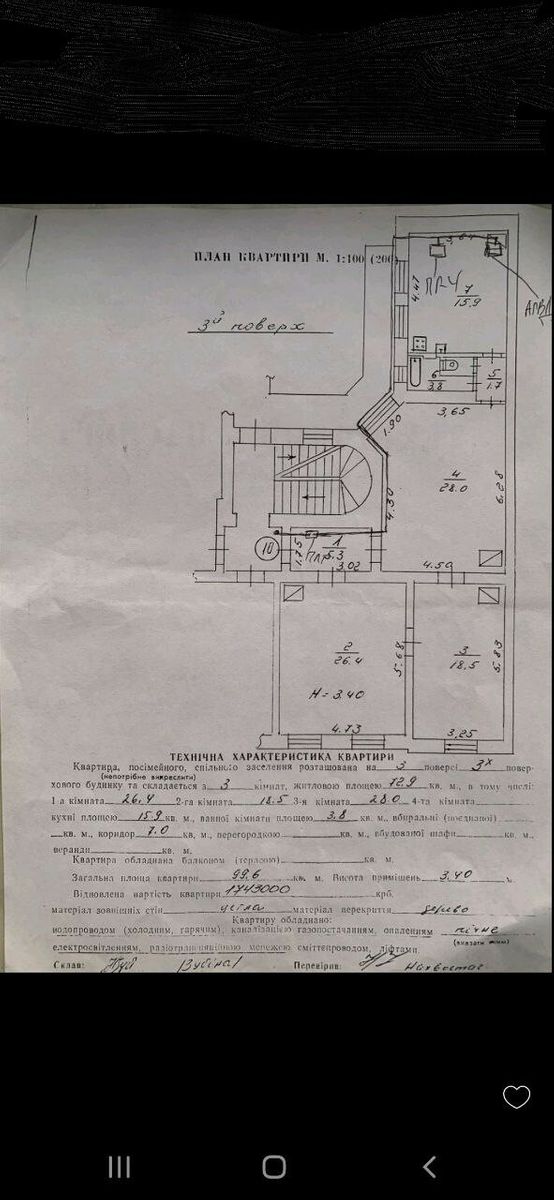 ПЛАН КВАРТИРИ М. 1:100 (200)
3й поверх
3,64
4.47
ПГЧ
7
15.9
6
3.8
5
1.7
1.90
3,65
4
28.0
6.28
4.30
10
1.75
1
5.3
3.02
4.50
2
26.4
5.68
3
18,5
5.83
H = 3.40
4.73
3,25
ТЕХНІЧНА ХАРАКТЕРИСТИКА КВАРТИРИ
Квартира, посімейного, спільного заселення розташована на 3 поверсі 3х повер-
(непотрібно викреслити)
хового будинку та складається з 3 кімнат, житловою площею 72.9 кв. м., в тому числі:
1-а кімната 26.4 2-га кімната 18.5 3-я кімната 28.0 4-та кімната
кухні площею 15.9 кв. м., ванної кімнати площею 3.8 кв. м., вбиральні (поєднаної)
кв. м., коридор 7.0 кв. м., перегородкою кв. м., вбудованої шафи кв. м.,
веранди кв. м.
Квартира обладнана балконом (терасою) кв. м.
Загальна площа квартири 99,6 кв. м. Висота приміщень 3,40 м.
Відновлена вартість квартири 1743000 крб.
матеріал зовнішніх стін цегла матеріал перекриття дерево
Квартиру обладнано:
водопроводом (холодним, гарячим), каналізацією газопостачанням, опаленням пічне
(вказати яким)
електроосвітленням, радіотрансляційною мережею сміттєпроводом, ліфтами.
Склав: Перевірив: